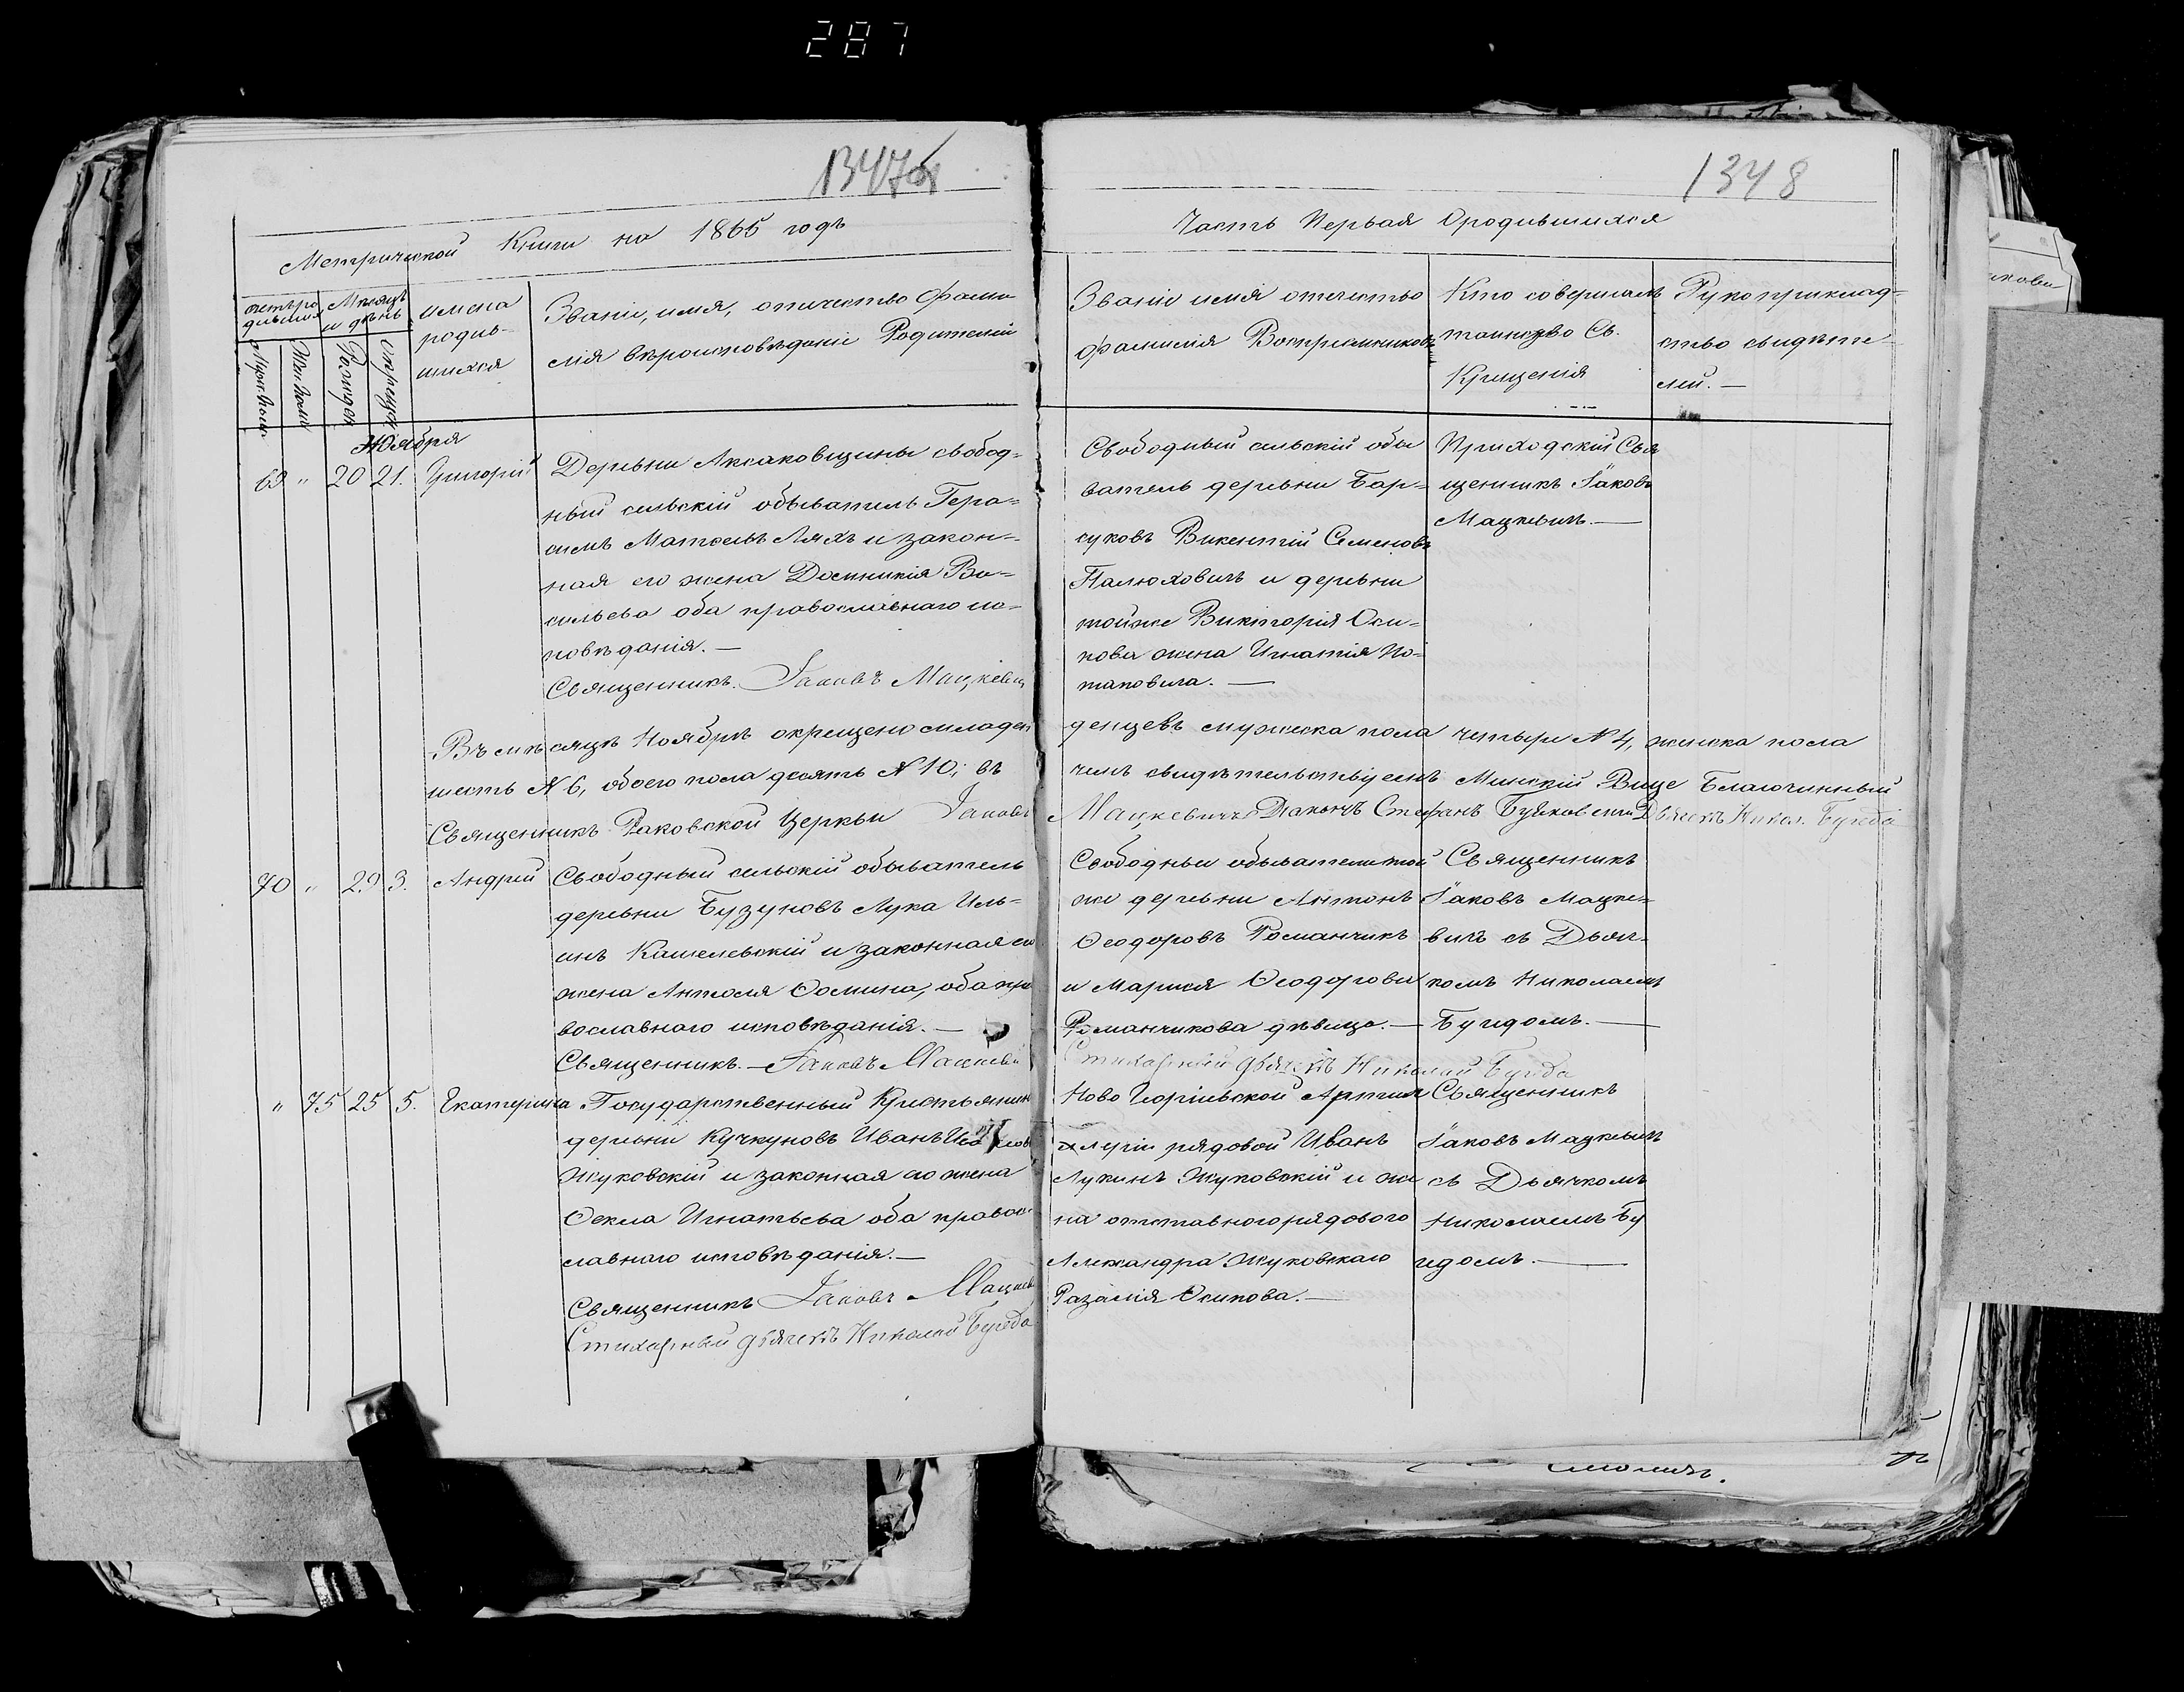 287
1347об
1348
Метрической Книги на 1865 годъ
Часть Первая О родившихся
Мѣсяцъ
и день
Муж. пола
Жен. пола
имена
родив-
шихся
Званіе, имя, отчество Фами-
лія вѣроисповѣданіе Родителей
Званіе имя отчество
фамилія Воспріемниковъ
Кто совершалъ
таинство Св.
Крещенія
Рукоприклад-
ство свидѣте
лей. —
Ноября
69 " 20 21. Григорій
Деревни Аксаковщины свобод-
ный сельскій обыватель Гера-
симъ Матѳеевъ Ляхъ и закон-
ная его жена Домникія Ва-
сильева оба православнаго ис-
повѣданія. —
Священникъ. Іаковъ Мацкевич
Свободный сельскій обы
ватель деревни Бар-
суковъ Викентій Семеновъ
Палюховичъ и деревни
тойже Викторія Оси-
пова жена Игнатія По-
таповича. —
Приходскій Свя
щенникъ Іаковъ
Мацкевичъ. —
Въ мѣсяцѣ Ноябрѣ окрещено младен денцевъ мужеска пола четыре N 4, женска пола
шесть N 6, обоего пола десять N 10; въ чемъ свидѣтельствуемъ Минскій Вице Благочинный
Священникъ Раковской Церкви Іаковъ Мацкевичъ Діаконъ Стефанъ Дьячекъ Никол.
70 " 29 3. Андрей
Свободный сельскій обыватель
деревни Бузуновъ Лука Иль-
инъ Кашелевскій и законная его
жена Антоля Ѳомина, оба пра
вославнаго исповѣданія. —
Священникъ. — Іаковъ Мацкеви
Свободные обыватели той
же деревни Антонъ
Ѳеодоровъ Романчикъ
и Марися Ѳеодорова
Романчикова дѣвица. —
Священникъ
Іаковъ Мацке-
вичъ съ Дьяч-
комъ Николаемъ
Бугдомъ. —
Стихарный дьячекъ Николай Бугда
" 75 25 5. Екатерина
Государственный Крестьянин
деревни Кучкуновъ Иванъ
Жуковскій и законная его жена
Ѳекла Игнатьева оба правос-
лавнаго исповѣданія. —
Священникъ Іаковъ Мацкев
Стихарный дьячекъ Николай Бугда
Ново Георгіевской Артил
леріи рядовой Иванъ
Лукинъ Жуковскій и же
на отставнаго рядоваго
Александра Жуковскаго
Разалія Осипова. —
Священникъ
Іаковъ Мацкевичъ
съ Дьячкомъ
Николаемъ Бу
гдомъ. —